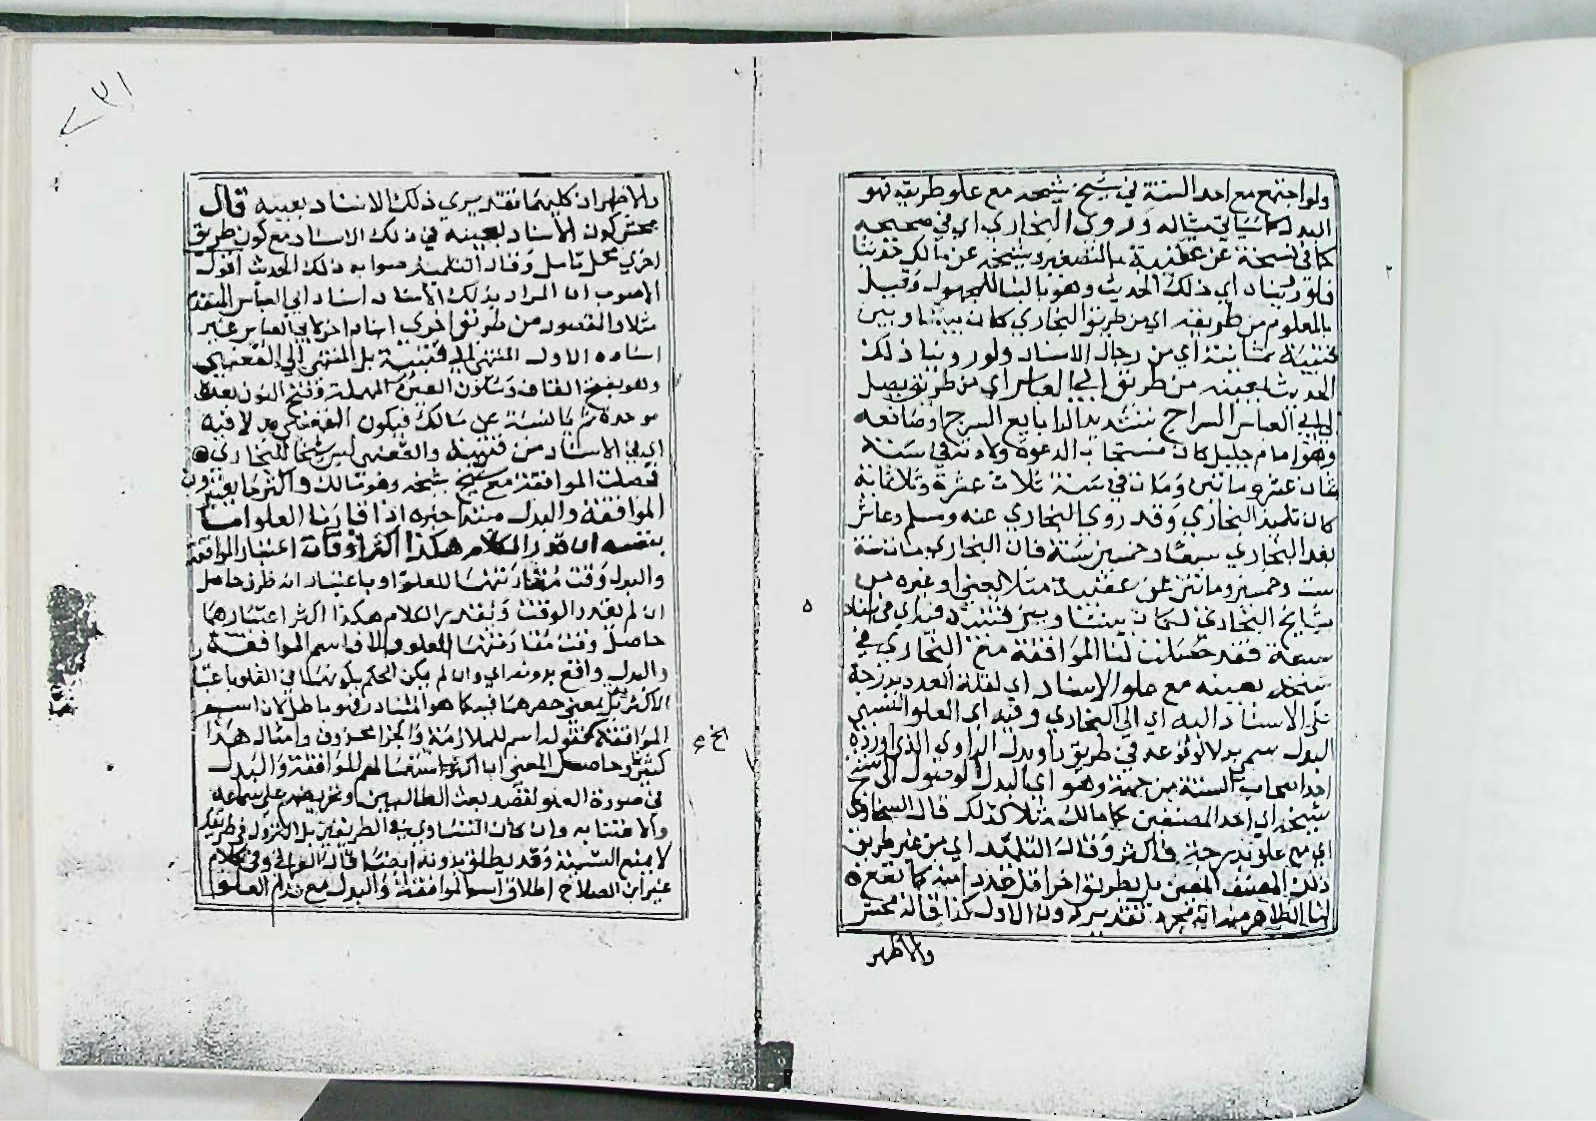 ولو اجتمع مع احد الستة في شيخ شيخه مع علو طريقه فهو
البدل كما سيأتي مثاله وروى البخاري اي في صحيحه
كما في نسخة عن قتيبة بالتصغير وشيخه عن مالك حديثا
فلو روينا اي ذلك الحديث وهو بالبنا للمجهول وقيل
بالمعلوم من طريقه اي من طريق البخاري كان بيننا وبين
قتيبة ثمانية اي من رجال الاسناد ولو روينا ذلك
الحديث بعينه من طريق ابي العباس اي من طريق يصل
الى ابي العباس السراج بتشديد الرا بايع السرج او صانعه
وهو امام جليل كان مستجاب الدعوة ولادته في سنة
ثمان عشر وماتين ومات في سنة ثلاث عشرة وثلاثماية
كان تلميذ البخاري وقد روى البخاري عنه ومسلم وعاش
بعد البخاري سبعا وخمسين سنة فان البخاري مات سنة
ست وخمسين وماتين عن قتيبة مثلا يعني او غيره من
مشايخ البخاري لكان بيننا وبين قتيبة فيه اي في اسناد
سبعة فقد حصلت لنا الموافقة مع البخاري في
شيخه بعينه مع علو الاسناد اي لقلة العدد بدرجة
على الاسناد اليه اي الى البخاري وفيه اي العلو النسبي
البدل سمي بدلا لوقوعه في طريق راو بدل الراوي الذي اورده
احد اصحاب الستة من جهته وهو اي البدل الوصول الى شيخ
شيخه اي احد المصنفين كامالك مثلا كذلك قال السخاوي
اي مع علو بدرجة فاكثر وقال التلميذ اي من غير طريق
ذلك المصنف المعين بل بطريق اخر اقل عددا منه كما يقع
لنا الظاهر منه انه مجرد تقدير دون الاول كذا قاله محش
والاظهر
٣١
والاظهر ان كليهما تقديري ذلك الاسناد بعينه قال
محش كون الاسناد بعينه في ذلك الاسناد مع كون طريق
اخرى محل تامل وقال التلميذ صوابه ذلك الحديث اقول
الاصوب ان المراد بذلك الاسناد اسناد ابي العباس المتقدم
مثلا والمقصود من طريق اخرى اسناد اخر لابي العباس غير
اسناده الاول المنتهي الى قتيبة بل المنتهي الى القعنبي
وهو بفتح القاف وسكون العين المهملة وفتح النون بعدها
موحدة ثم يا نسبة عن مالك فيكون القعنبي بدلا فيه
اي في الاسناد من قتيبة والقعنبي ليس شيخا للبخاري
فحصلت الموافقة مع شيخ شيخه وهو مالك واكثر ما يعتبرون
الموافقة والبدل مبتدا خبره اذا قارنا العلو اما
بنفسه ان قدر الكلام هكذا اكثر اوقات اعتبار الموافقة
والبدل وقت مقارنتهما للعلو او باعتبار انه ظرف حاصل
ان لم يقدر الوقت ويقدر الكلام هكذا اكثر اعتبارهما
حاصل وقت مقارنتهما للعلو والا فاسم الموافقة
والبدل واقع بدونه اي وان لم يكن الحكم بكونهما في العلو باعتبار
الاكثر بل بمعنى حصرهما فيه كما هو المتبادر فهو باطل لان اسم
الموافقة كمقوله اسم للملازمة والجزا محذوف وامثال هذا
كثير وحاصل المعنى انما اكثر استعمالهم للموافقة والبدل
في صورة العلو لقصد بعث الطالبين وتحريضهم على سماعه
والاعتنا به وان كان التساوي في الطريقين بل النزول في طريقك
لا يمنع التسمية وقد يطلق بدونه ايضا قال العراقي وفي كلام
غير ابن الصلاح اطلاق اسم الموافقة والبدل مع عدم العلو